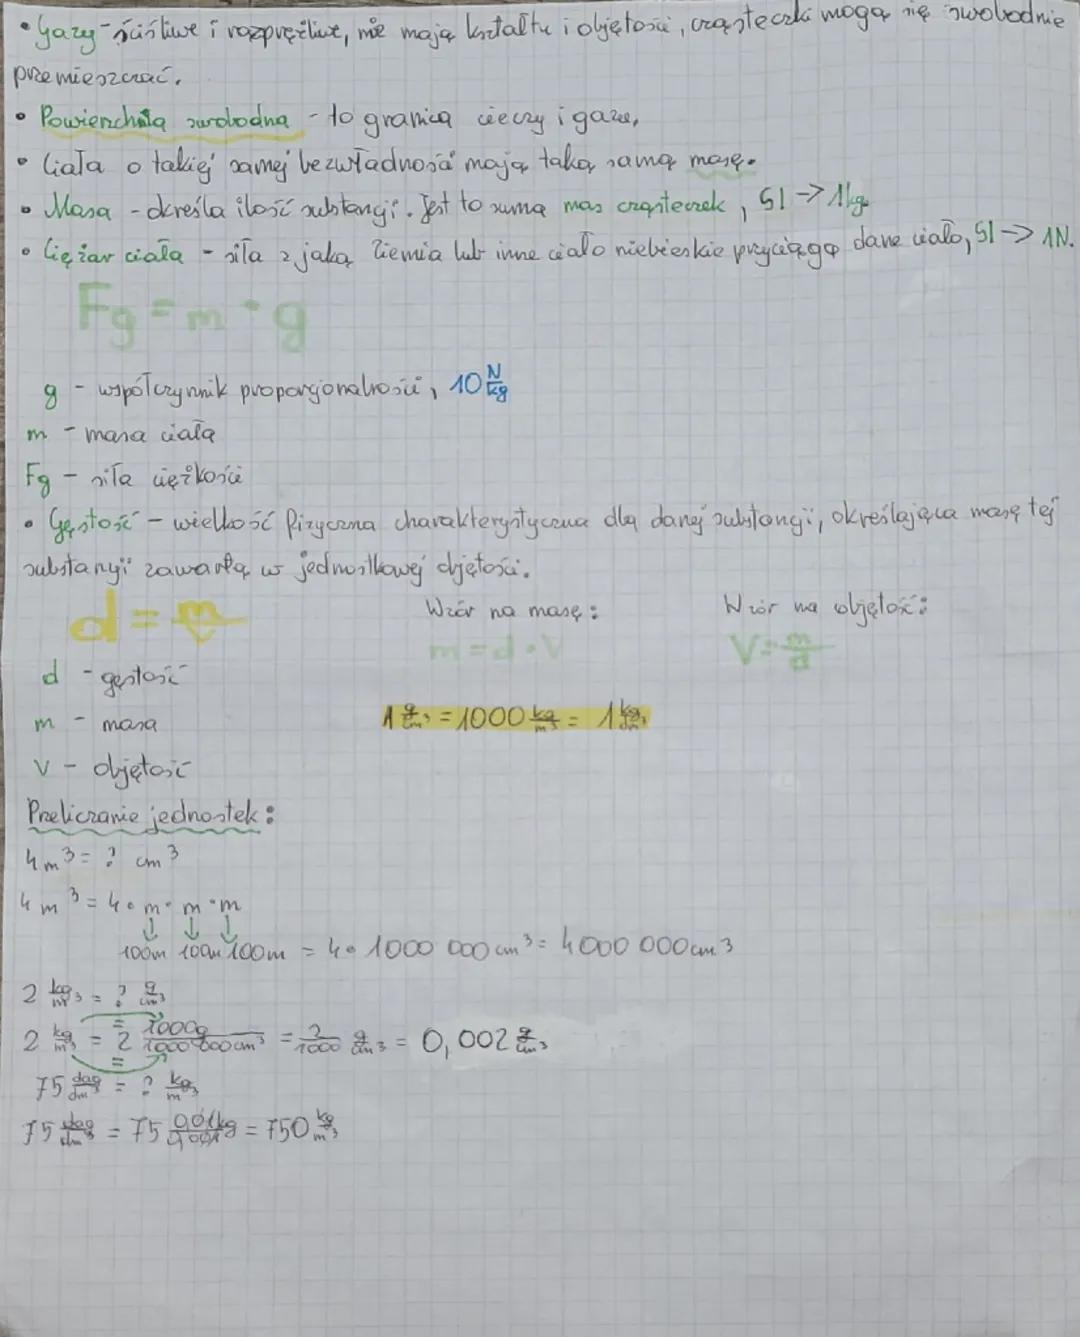 • Gazy - ściśliwe i rozprężliwe, nie mają kształtu i objętości, cząsteczki mogą się swobodnie
przemieszczać.
• Powierzchnia swobodna - to granica cieczy i gazu,
• Ciała o takiej samej bezwładności mają taką samą masę.
• Masa - określa ilość substancji. Jest to suma mas cząsteczek, SI → 1kg.
• Ciężar ciała - siła z jaką Ziemia lub inne ciało niebieskie przyciąga dane ciało, SI → 1N.
Fg = m • g
g - współczynnik proporcjonalności, 10 N/kg
m - masa ciała
Fg - siła ciężkości
• Gęstość - wielkość fizyczna charakterystyczna dla danej substancji, określająca masę tej
substancji zawartą w jednostkowej objętości.
d = m/V Wzór na masę: Wzór na objętość:
m = d • V V = m/d
d - gęstość
m - masa 1 g/cm³ = 1000 kg/m³ = 1 kg/dm³
V - objętość
Przeliczanie jednostek:
4 m³ = ? cm³
4 m³ = 4 • m • m • m
↓ ↓ ↓
100m 100m 100m = 4 • 1000 000 cm³ = 4000 000 cm³
2 kg/m³ = ? g/cm³
2 kg/m³ = 2 1000g/1000 000cm³ = 2/1000 g/cm³ = 0,002 g/cm³
75 dag/dm³ = ? kg/m³
75 dag/dm³ = 75 0,01kg/0,001 = 750 kg/m³